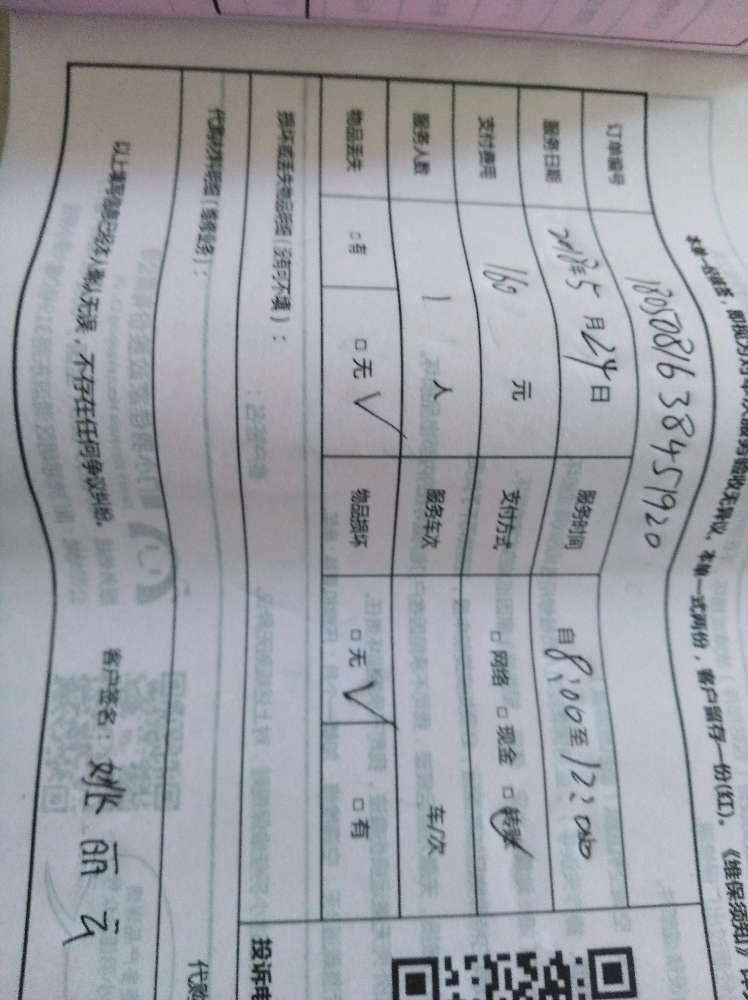 本单一经签署，即视为对本次服务验收无异议。本单一式两份，客户留存一份(红)。《维保须知》
订单编号 1805081638451920
服务日期 2018年5月24日 服务时间 自8:00至12:00
支付费用 160元 支付方式 □网络 □现金 □转账
服务人数 1人 服务车次 车/次
物品丢失 □有 □无 √ 物品损坏 □无 √ □有
损坏或丢失物品明细（没有可不填）：
代购材料明细（维修业务）：
投诉电
以上填写信息已经本人确认无误，不存在任何争议纠纷。 客户签名：姚丽云